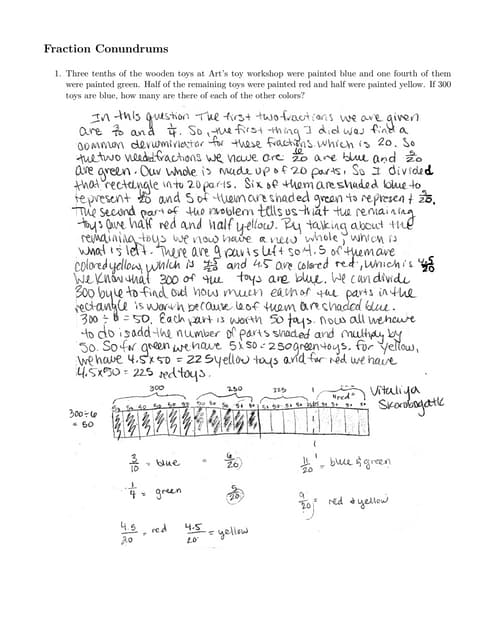 Fraction Conundrums
1. Three tenths of the wooden toys at Art's toy workshop were painted blue and one fourth of them
were painted green. Half of the remaining toys were painted red and half were painted yellow. If 300
toys are blue, how many are there of each of the other colors?
In this question The first two fractions we are given
are 3/10 and 1/4. So, the first thing I did was find a
common for these fractions which is 20. So
the two fractions we have are are blue and 5/20
are green. Our whole is made up of 20 parts, So I divided
that rectangle into 20 parts. Six of them are shaded blue to
represent 6/20 and 5 of them are shaded green to represent 5/20.
The second part of the problem tells us that the remaining
toys are half red and half yellow. By talking about the
remaining toys we now have a new whole, which is
what is left. There are 9 parts left so 4.5 of them are
colored yellow which is 4.5/20 and 4.5 are colored red, which is 4.5/20
We know that 300 of the toys are blue. We can divide
300 by 6 to find out how much each of the parts in the
rectangle is worth because 6 of them are shaded blue.
300 ÷ 6 = 50. Each part is worth 50 toys. Now all we have
to do is add the number of parts shaded and multiply by
50. So for green we have 5x50 = 250 green toys. For yellow,
we have 4.5x50 = 225 yellow toys and for red we have
4.5x50 = 225 red toys.
Vitaliya
300 250 225 "red"
300÷6
= 50
50 50 50 50 50 50 50 50 50 50 50 50 50 50 50
3/10 = blue = 6/20 11/20 = blue & green
1/4 = green 5/20 9/20 = red & yellow
4.5/20 = red 4.5/20 = yellow